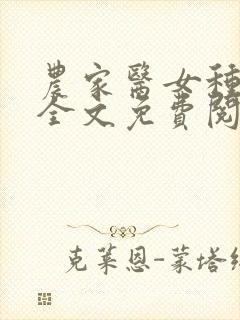 農家醫女種
全文免費閱
克萊恩-蒙塔